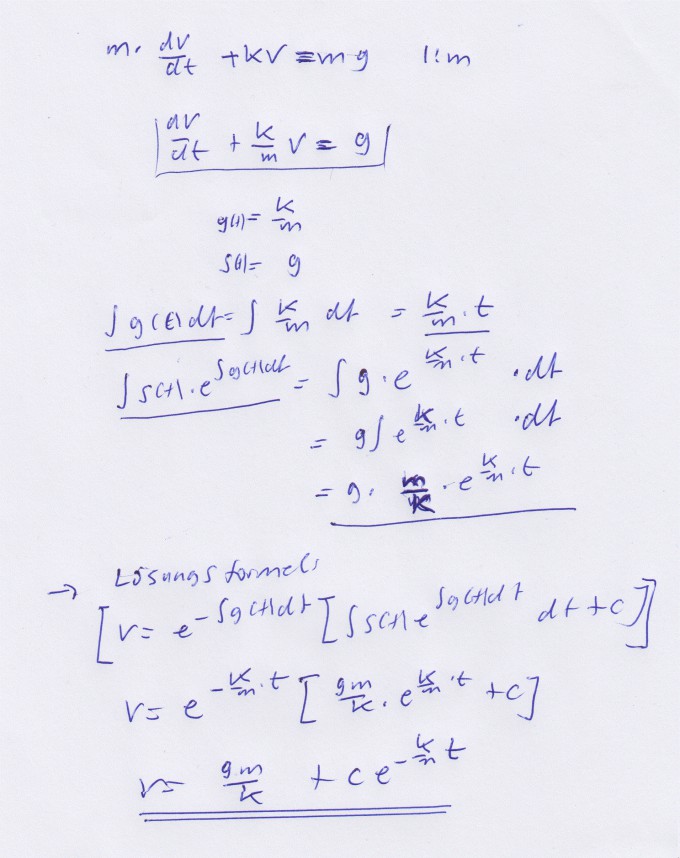 m· dv/dt + kv = mg lim
dv/dt + k/m v = g
g(t) = k/m
s(t) = g
∫ g(t) dt = ∫ k/m dt = k/m · t
∫ s(t) · e^∫g(t)dt = ∫ g · e^(k/m · t) · dt
= g ∫ e^(k/m · t) · dt
= g · m/k · e^(k/m · t)
→ Lösungsformel:
[v = e^(-∫g(t)dt) [∫ s(t) e^(∫g(t)dt) dt + c]]
v = e^(-k/m · t) [gm/k · e^(k/m · t) + c]
v = gm/k + c e^(-k/m t)